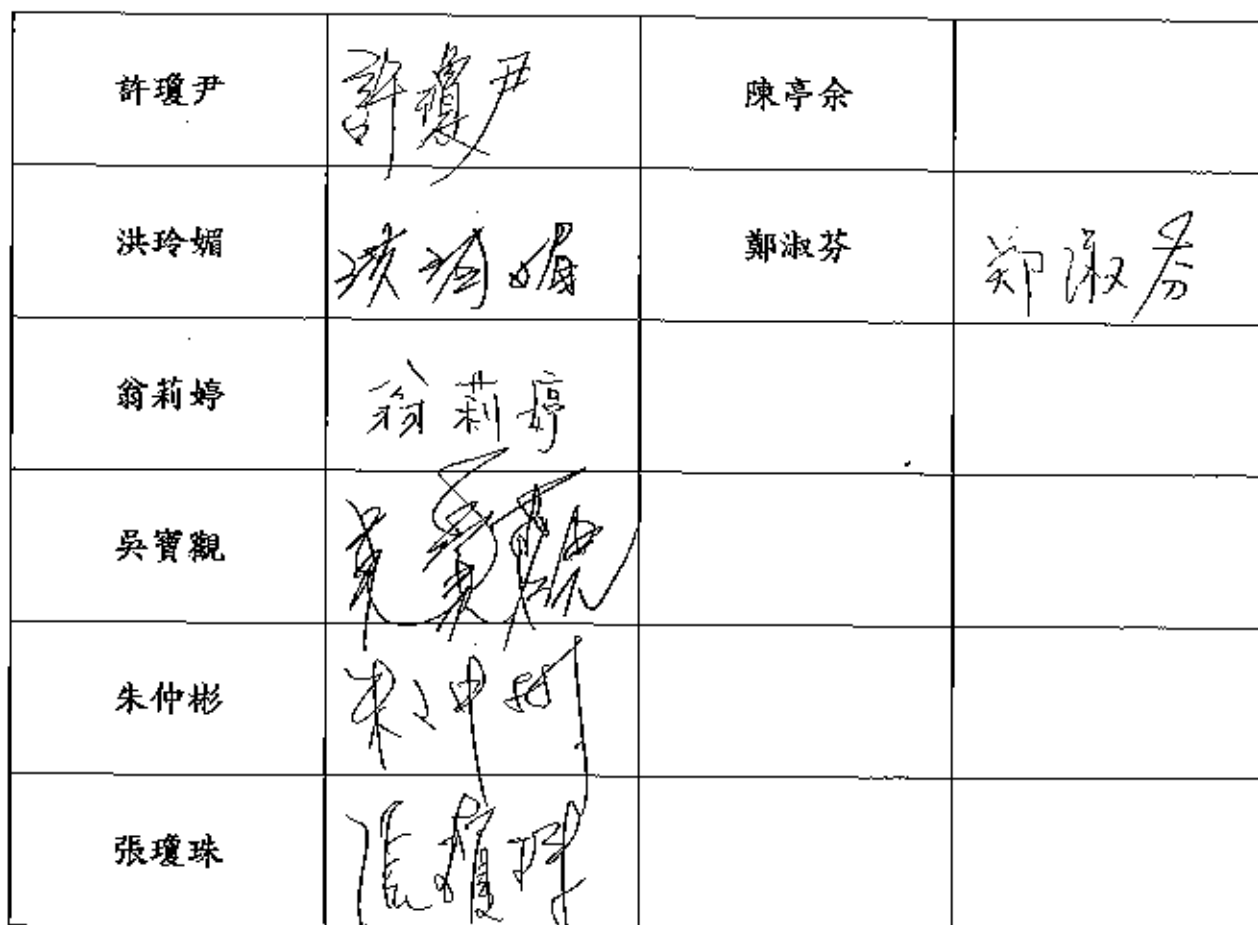 許瓊尹 許瓊尹 陳亭余
洪玲媚 洪玲媚 鄭淑芬 郑淑芬
翁莉婷 翁莉婷
吳寶觀 吳寶觀
朱仲彬 朱仲彬
張瓊珠 張瓊珠